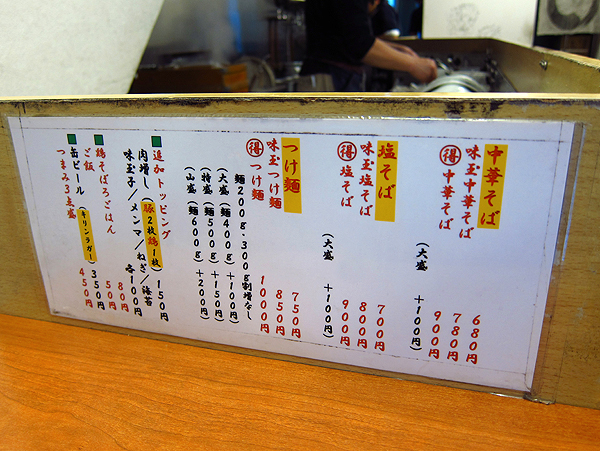 中華そば 680円
味玉中華そば 780円
得 中華そば 900円
(大盛 +100円)
塩そば 700円
味玉塩そば 800円
得 塩そば 900円
(大盛 +100円)
つけ麺 750円
味玉つけ麺 850円
得 つけ麺 1000円
麺200g・300g割増なし
(大盛 麺400g) +100円)
(特盛 麺500g) +150円)
(山盛 麺600g) +200円)
■追加トッピング
肉増し(豚2枚鶏1枚) 150円
味玉子/メンマ/ねぎ/海苔 各100円
■鶏そぼろごはん 80円
ご飯 50円
■缶ビール(キリンラガー) 350円
つまみ3点盛 450円